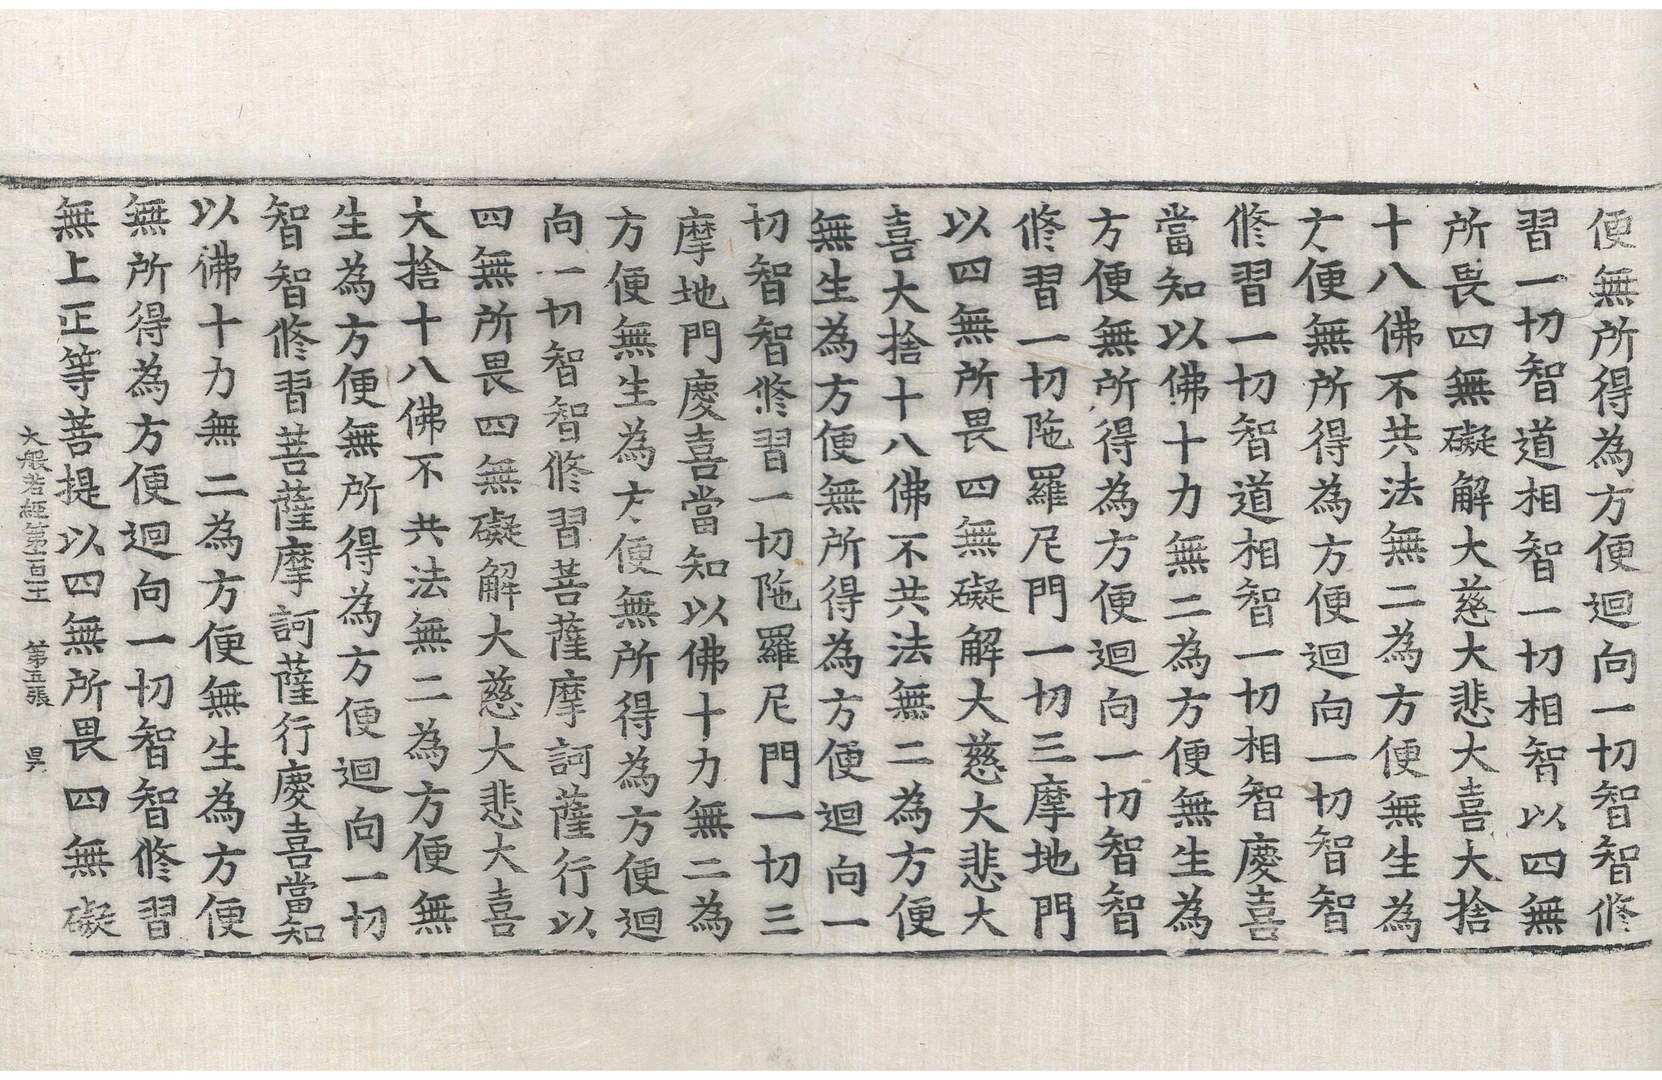 便無所得為方便迴向一切智智修
習一切智道相智一切相智以四無
所畏四無礙解大慈大悲大喜大捨
十八佛不共法無二為方便無生為
方便無所得為方便迴向一切智智
修習一切智道相智一切相智慶喜
當知以佛十力無二為方便無生為
方便無所得為方便迴向一切智智
修習一切陁羅尼門一切三摩地門
以四無所畏四無礙解大慈大悲大
喜大捨十八佛不共法無二為方便
無生為方便無所得為方便迴向一
切智智修習一切陁羅尼門一切三
摩地門慶喜當知以佛十力無二為
方便無生為方便無所得為方便迴
向一切智智修習菩薩摩訶薩行以
四無所畏四無礙解大慈大悲大喜
大捨十八佛不共法無二為方便無
生為方便無所得為方便迴向一切
智智修習菩薩摩訶薩行慶喜當知
以佛十力無二為方便無生為方便
無所得為方便迴向一切智智修習
無上正等菩提以四無所畏四無礙
大般若經第一百二 第五張 昃